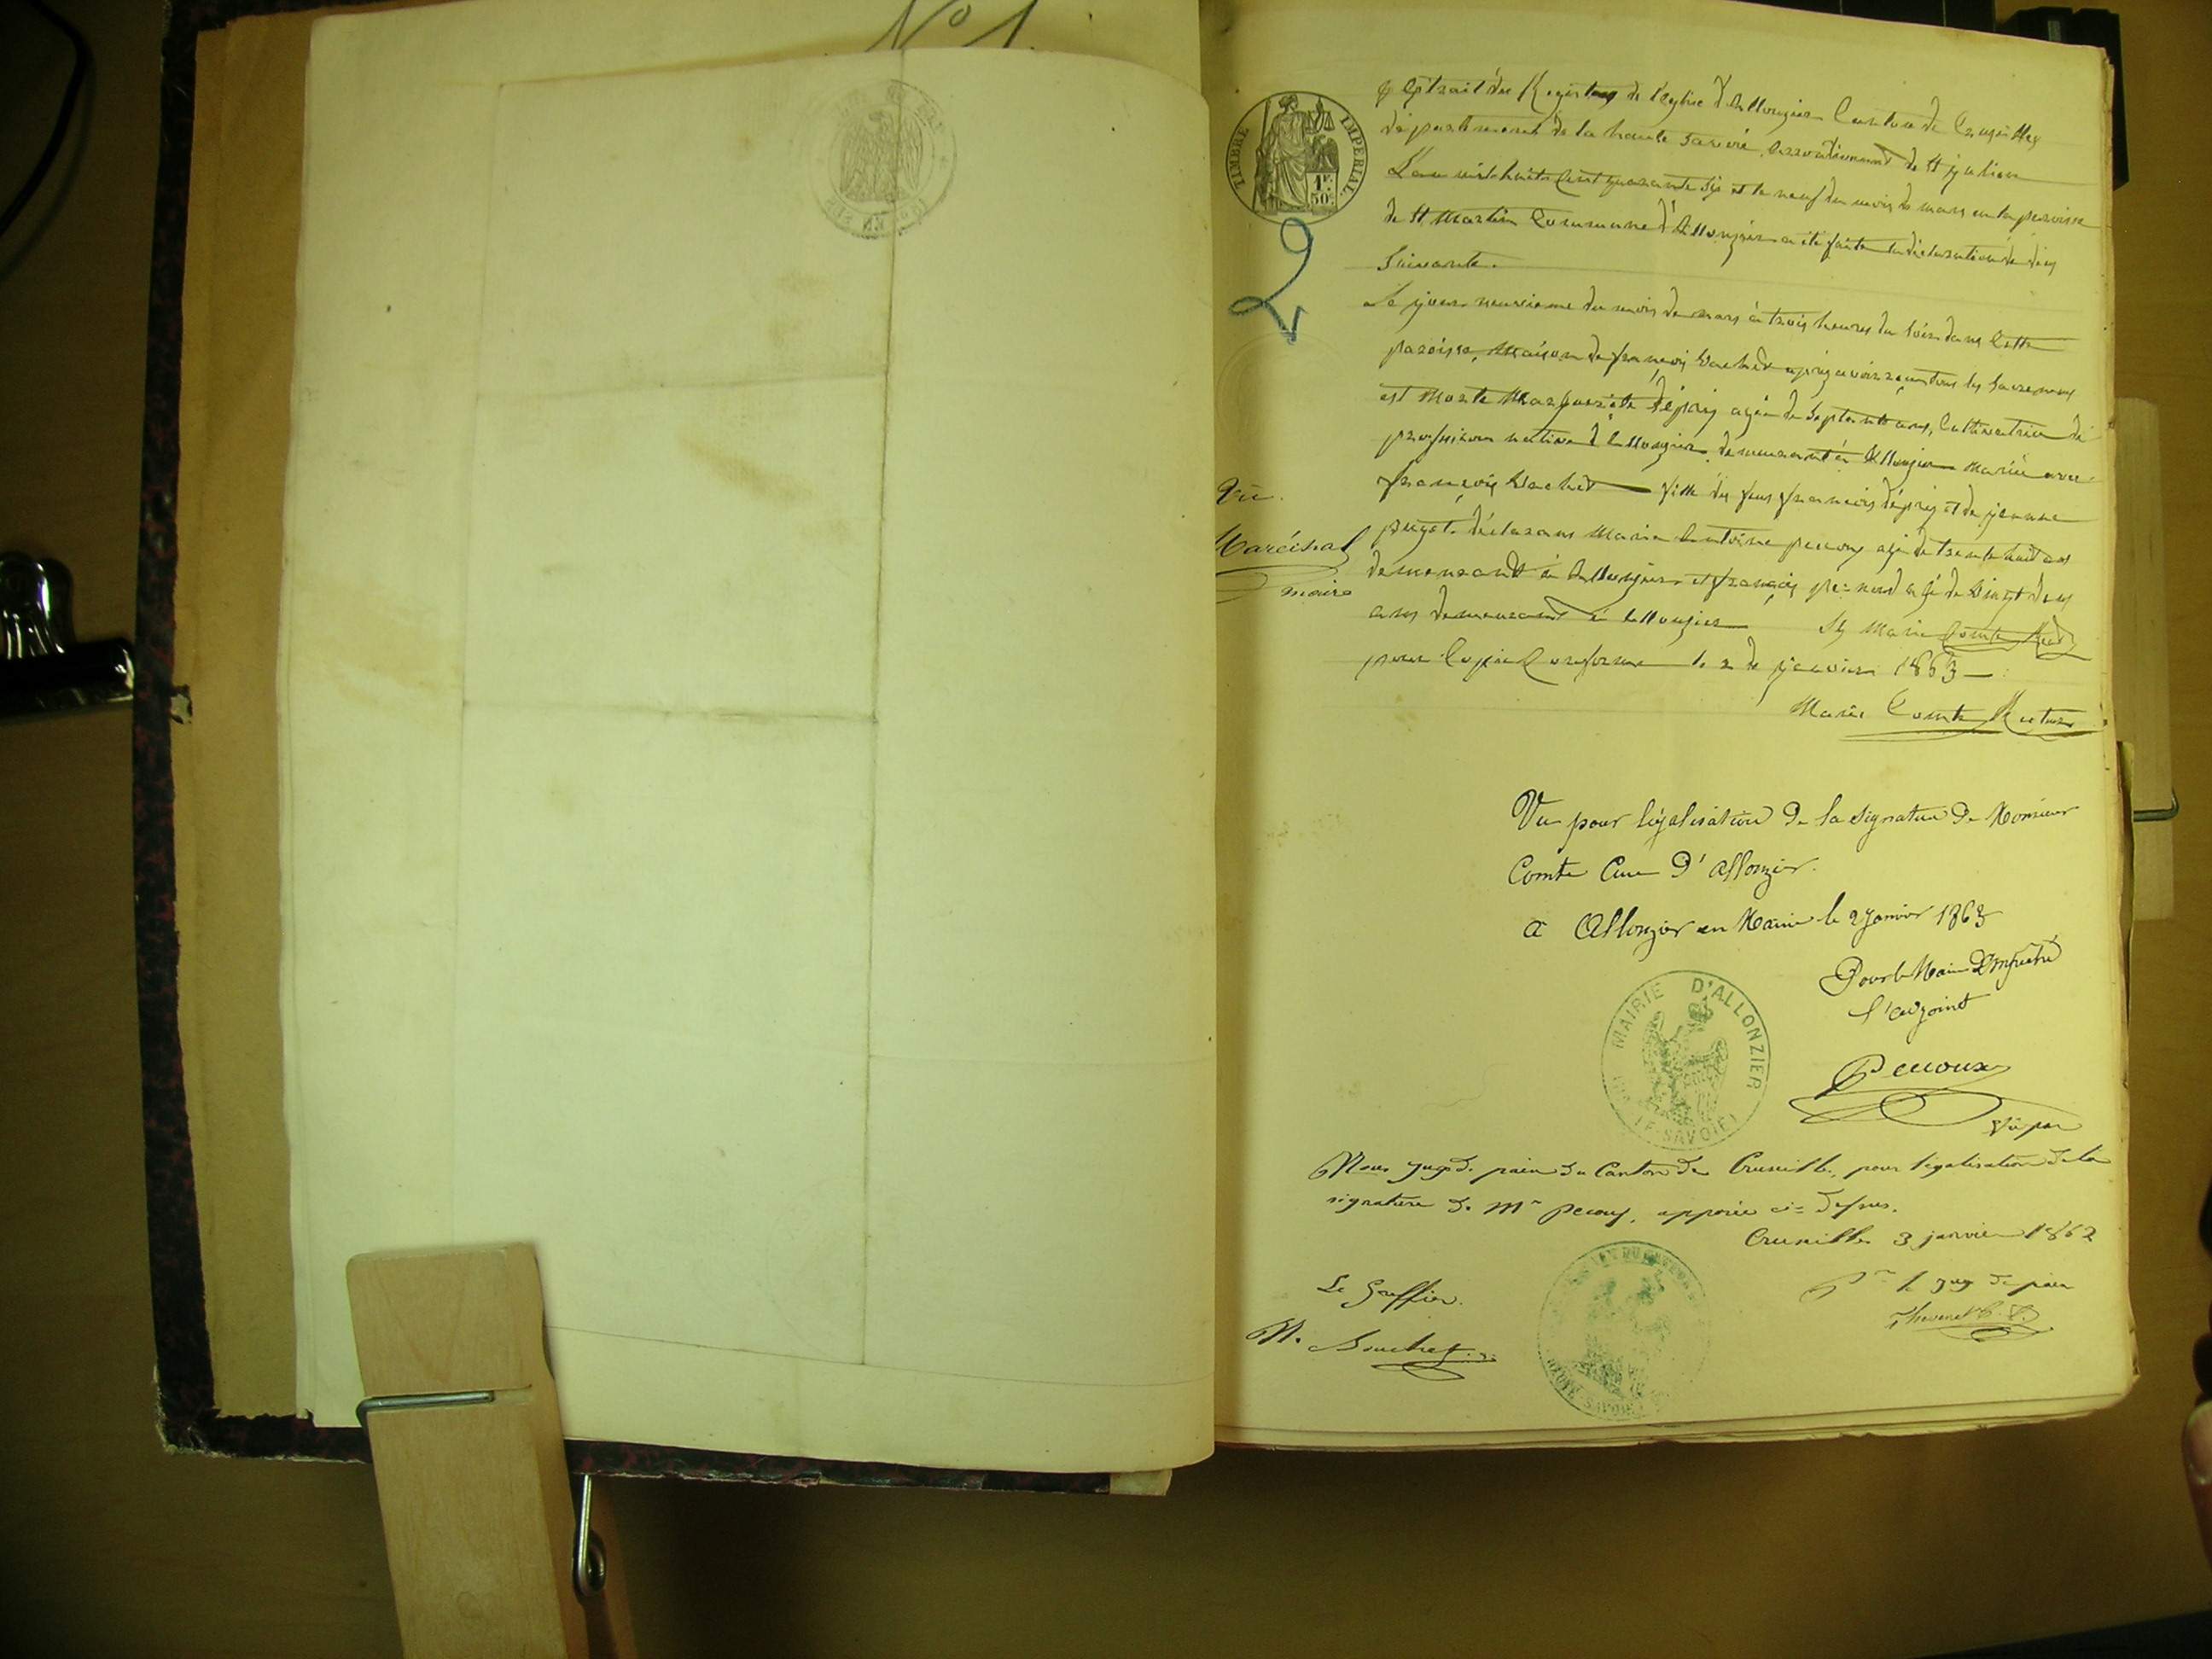 No 1.
TIMBRE IMPERIAL.
1F.
50c
2
Extrait des Registres de l'eglise d'Allonzier Canton de Cruseilles
département de la haute Savoie, arrondissement de St julien
L'an mil huit cent quarante six et le neuf du mois de mars en la paroisse
de St Martin Commune d'Allonzier a été faite la déclaration de décès
Suivante.
Le jour neuvieme du mois de mars à trois heures du soir dans cette
paroisse, Maison de françois Vachet après avoir reçu tous les Sacremens
est Morte Marguerite dépres agée de Septante ans, Cultivatrice de
profession native d'allonzier demeurant à Allonzier Mariée avec
françois Vachet fille des feus françois déprés et de jeanne
puget. déclarans Marie Antoine pecoux agé de trente huit ans
demeurant à Allonzier et françois agé de Vingt deux
ans demeurant à allonzier Sg Marin Comte Rect
pour Copie Conforme le 2 de janvier 1863
Marin Comte Recteur
Vu.
Maréchal
maire
Vu pour légalisation de la signature de Monsieur
Comte Curé d'Allonzier.
à Allonzier en Mairie le 2 janvier 1863
Pour le Maire Empêché
l'adjoint
Pecoux
MAIRIE D'ALLONZIER
(HTE SAVOIE)
Vu par
Nous juge de paix du Canton de Cruseilles, pour légalisation de la
signature de Mr Pecoux, apposée ci-dessus.
Cruseilles 3 janvier 1863
Pr le juge de paix
Thevenet
Le Greffier.
M. Bouchet